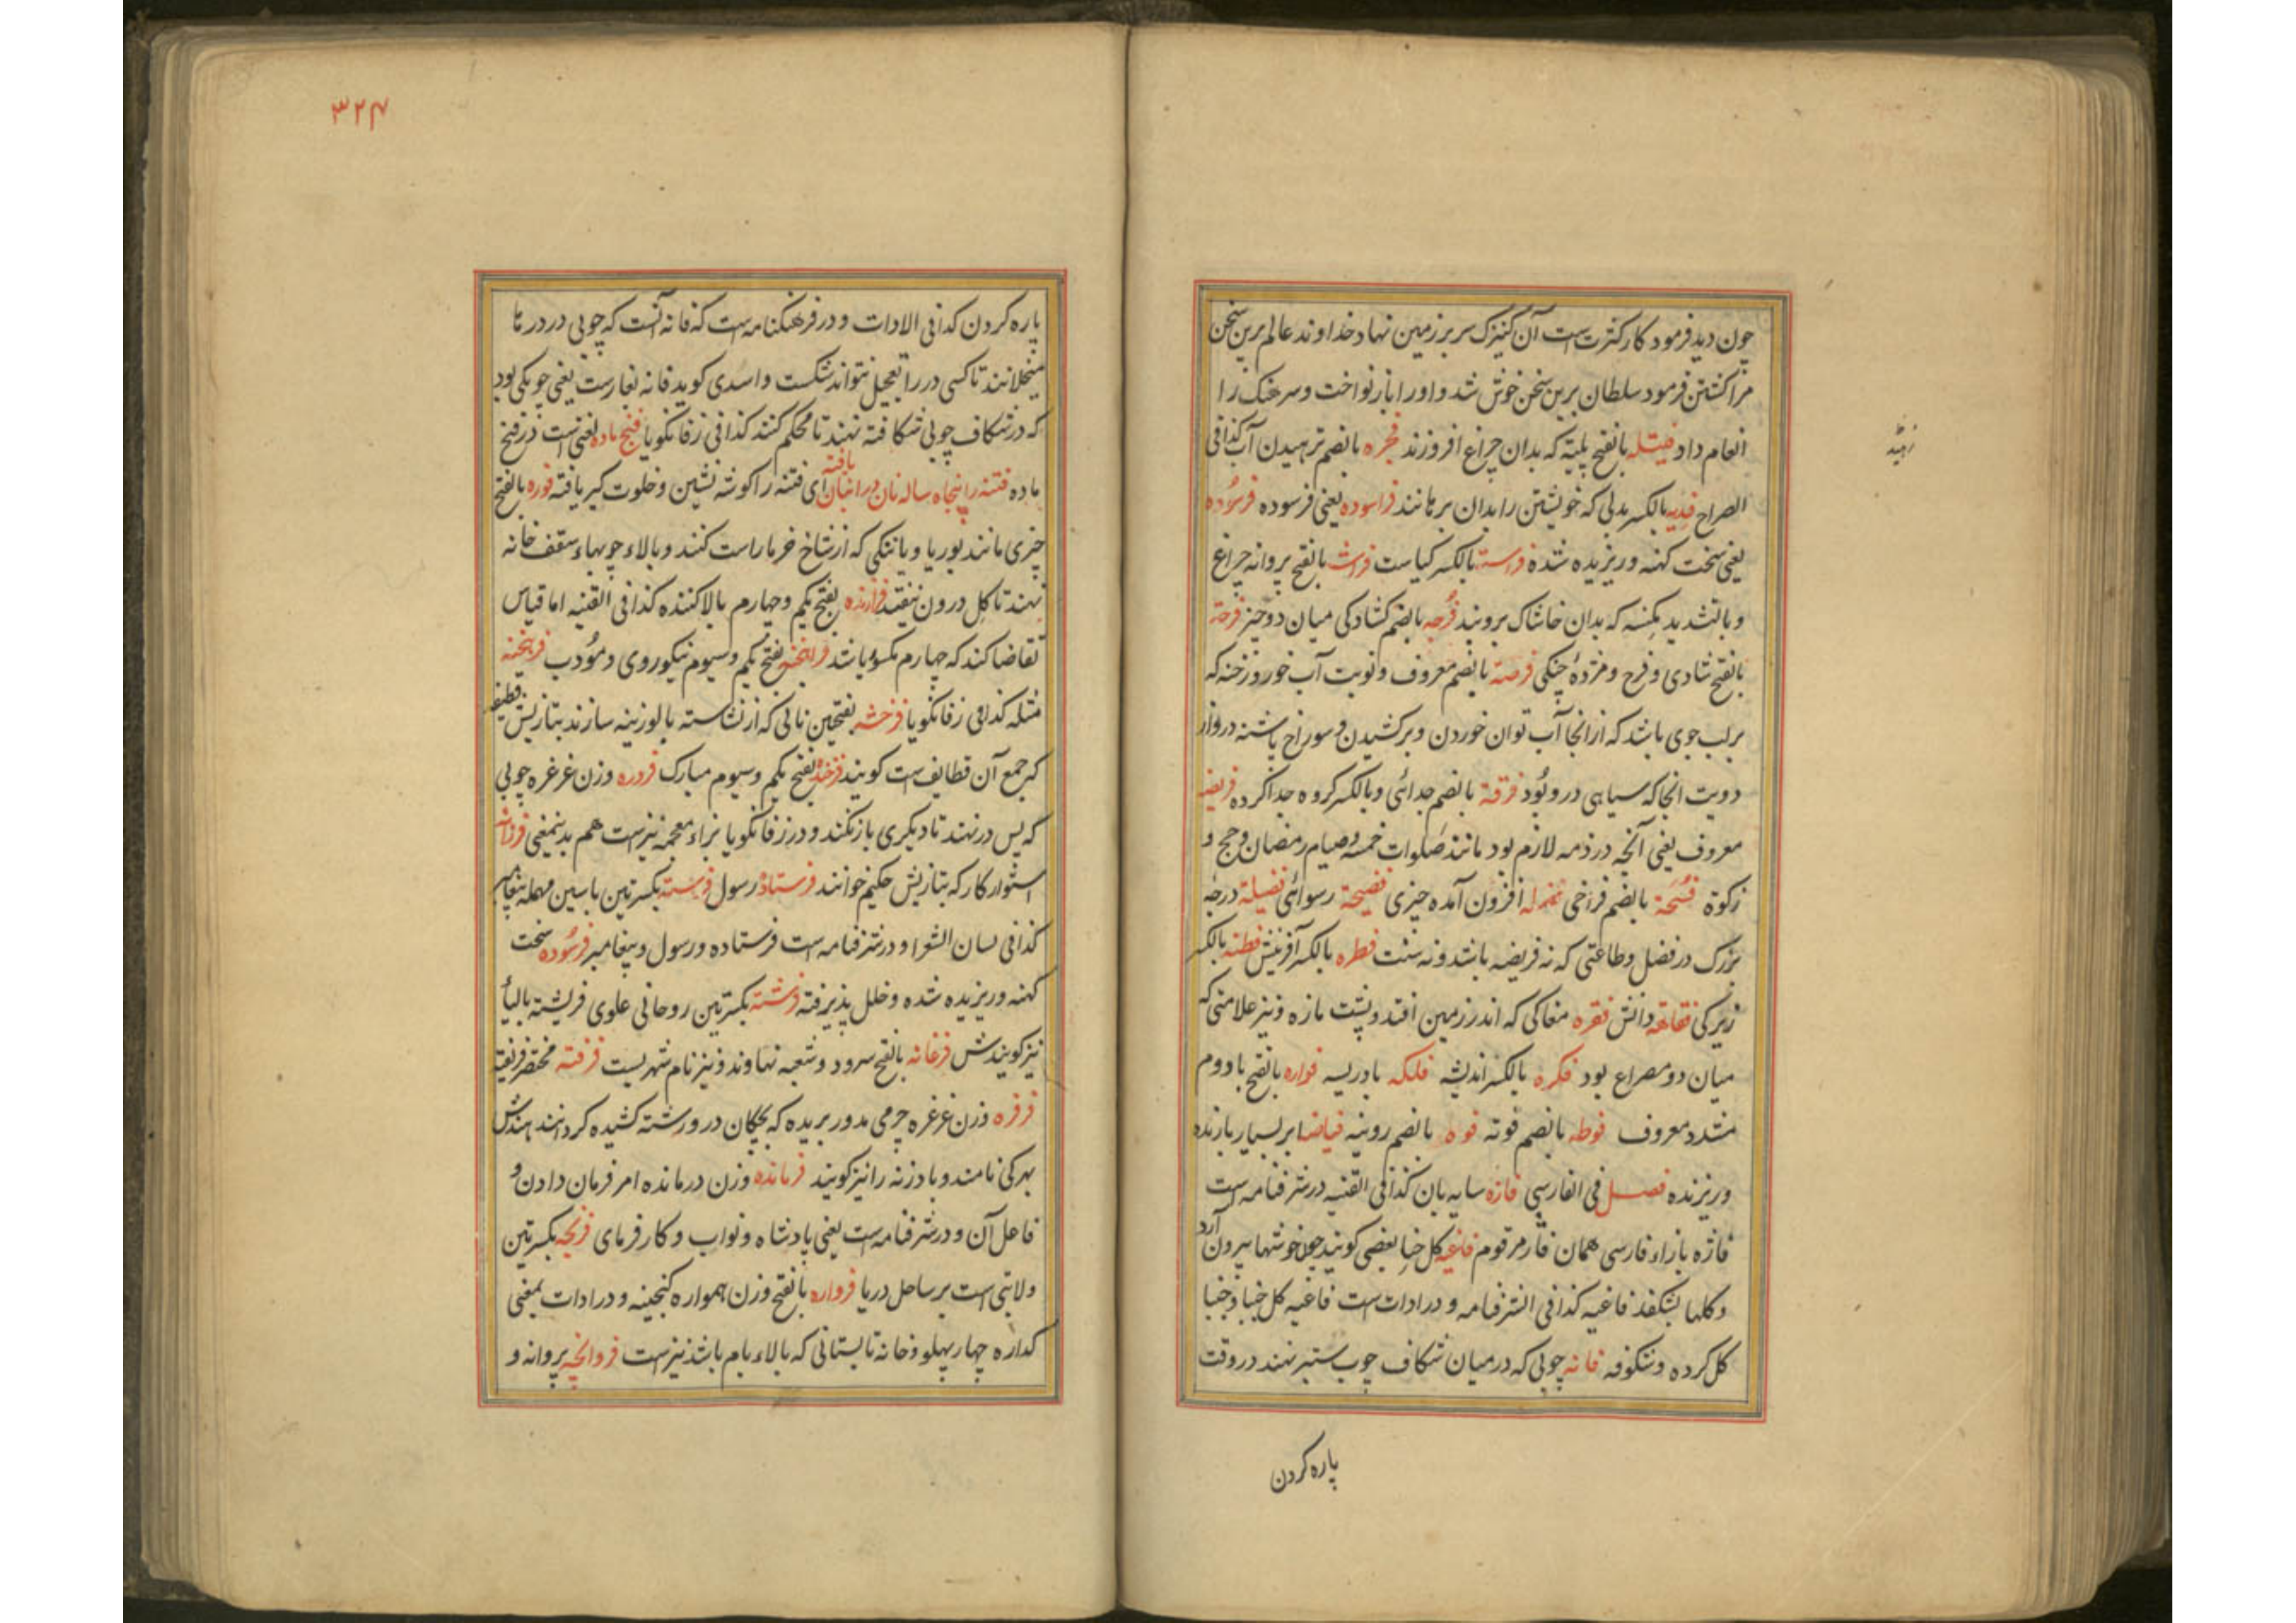 چون دید فرمود کار کنرت است آن کنیزک سر بر زمین نهاد خداوند عالم برین سخن
مرا کشتن فرمود سلطان برین سخن خوش شد و او را باز نواخت و سرهنک را
انعام داد فتیله بالفتح پلیته که بدان چراغ افروزند فجره بالضم ترهیدن آب کذا فی
زهید
الصراح فدیه بالکسر بدلی که خویشتن را بدان برهانند فراسوده یعنی فرسوده فرسوده
یعنی سخت کهنه و ریزیده شده فراسته بالکسر کیاست فراشه بالفتح پروانه چراغ
و بالتشدید مکنسه که بدان خاشاک بروبند فرجه بالضم کشادکی میان دو چیز فرحة
بالفتح شادی و فرح و مژدهٔ چنکی فرصة بالضم معروف و نوبت آب خور و رخنه که
بر لب جوی باشد که از انجا آب توان خوردن و برکشیدن و سوراخ پاشنه در و از
دویت انجا که سیاهی درو بود فرقة بالضم جدائی و بالکسر کروه جدا کرده فریضه
معروف یعنی آنچه در ذمه لازم بود مانند صلوات خمسه و صیام رمضان و حج و
زکوة فسحة بالضم فراخی افزون آمده چیزی فضیحة رسوائی فضیلة درجه
بزرک در فضل و طاعتی که نه فریضه باشد و نه سنت فطره بالکسر آفرینش فطنه بالکسر
زیرکی فقاهة دانش فقره مغاکی که اندر زمین افتد و پشت مازه و نیز علامتی که
میان دو مصراع بود فکره بالکسر اندیشه فلکه بادریسه فواره بالفتح با دوم
مشدد معروف فوطه بالضم فوته فوه بالضم روینه فیاضه ابر بسیار بارنده
و ریزنده فصل فی الفارسی فازه سایه بان کذا فی القنیه در شرفنامه است
فاژه با زاء فارسی همان فاز مرقوم فاغیه کل حنا بعضی کویند چون خوشها بیرون آرد
و کلها بشکفد فاغیه کذا فی الشرفنامه و در ادات است فاغیه کل حنا و حنا
کل کرده و شکوفه فانه چوبی که در میان شکاف چوب ستبر نهند در وقت
پاره کردن
۳۲۴
پاره کردن کذا فی الادات و در فرهنکنامه است که فانه آنست که چوبی در در ما
میخلانند تا کسی در را بتعجیل نتواند شکست و اسدی کوید فانه بغارست یعنی چوبکی بود
که در شکاف چوبی شکافته نهند تا محکم کنند کذا فی زفانکویا فتج ماده لغتی است در فتح
ماده فتنه را پنجاه ساله نان در انبان یافته ای فتنه را کوشه نشین و خلوت کیر یافته فوره بالفتح
چیزی مانند بوریا و یا تنکی که از شاخ خرما راست کنند و بالاء چوبهاء سقف خانه
نهند تا کل درون نیفتد فرازنده بفتح یکم و چهارم بالا کننده کذا فی القنیه اما قیاس
تقاضا کند که چهارم مکسور باشد فراهخته بفتح یکم و سیوم نیکوروی و مؤدب فرهخته
مثله کذا فی زفانکویا فرخشه بفتحتین نانی که از نشاسته با لوزینه سازند بتازیش قطیفه
که جمع آن قطایف است کویند فرخنده بفتح یکم و سیوم مبارک فردره وزن غرغره چوبی
که پس در نهند تا دیکری باز نکند و در زفانکویا بزاء معجمه نیزست هم بدینمعنی فرزانه
استوار کار که بتازیش حکیم خوانند فرستاده رسول فرسته بکسرتین با سین مهمله پیغامبر
کذا فی لسان الشعرا و در شرفنامه است فرستاده و رسول و پیغامبر فرسوده سخت
کهنه و ریزیده شده و خلل پذیرفته فرشته بکسرتین روحانی علوی فریشته بالیأ
نیز کویندش فرغانه بالفتح سرود و شعبه نهاوند و نیز نام شهریست فرفته مختصر فریفته
فرفره وزن غرغره چرمی مدور بریده که بچکان درو رشته کشیده کردانند هندش
بهرکی نامند و بادزنه را نیز کویند فرمانده وزن درمانده امر فرمان دادن و
فاعل آن و در شرفنامه است یعنی پادشاه و نواب و کارفرمای فرنجه بکسرتین
ولایتی است بر ساحل دریا فرواره بالفتح وزن همواره کنجینه و در ادات بمعنی
کداره چهار پهلو و خانه تابستانی که بالاء بام باشد نیزست فروانچه پروانه و